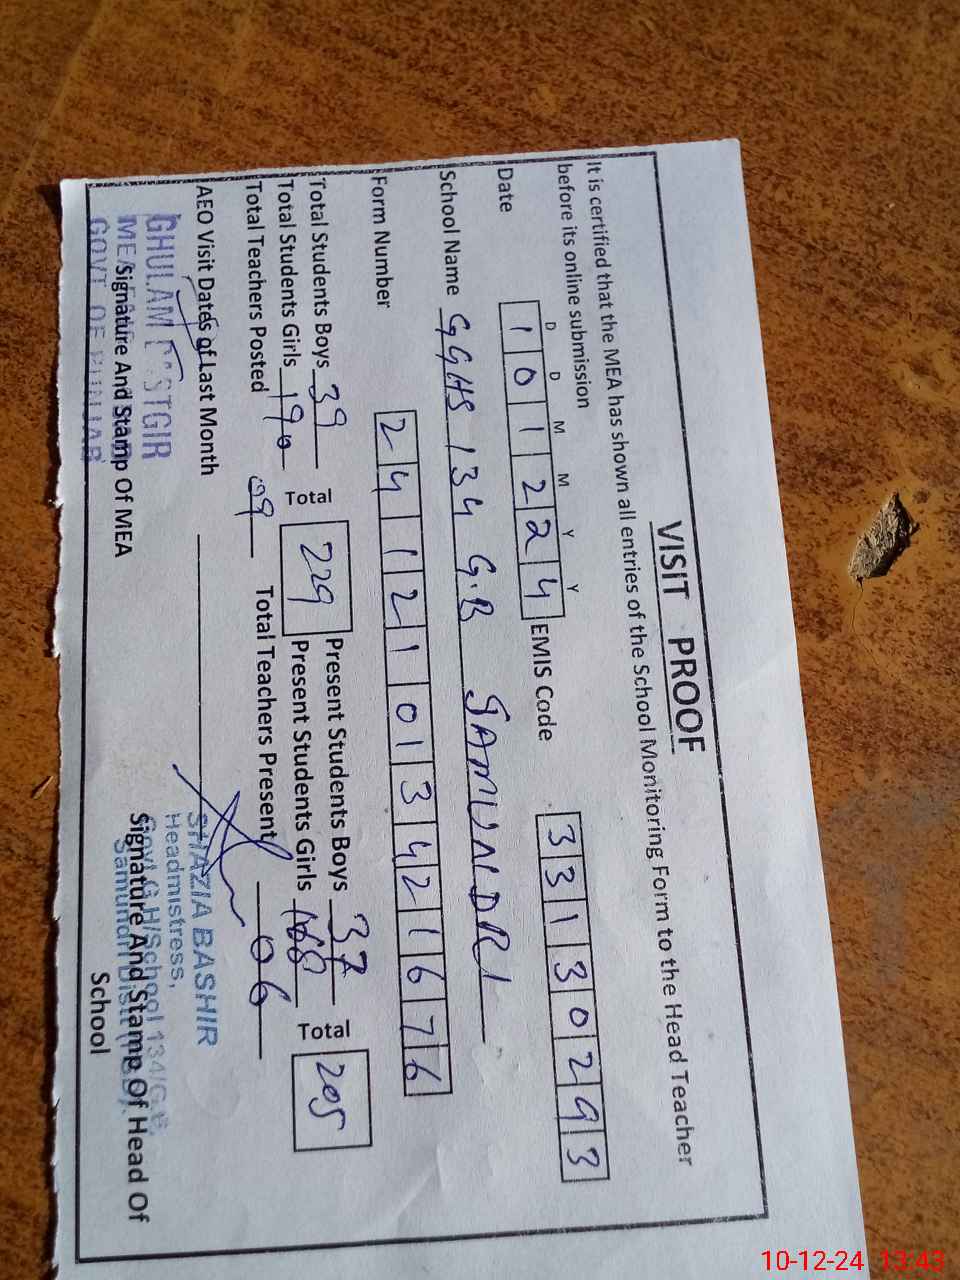 VISIT PROOF
It is certified that the MEA has shown all entries of the School Monitoring Form to the Head Teacher
before its online submission
D D M M Y Y
Date 1 0 1 2 2 4 EMIS Code 3 3 1 3 0 2 9 3
School Name GGHS 134 G.B SAMUNDRI
Form Number 2 4 1 2 1 0 1 3 4 2 1 6 7 6
Total Students Boys 39 Total 229 Present Students Boys 37 Total 205
Total Students Girls 190 Present Students Girls 168
Total Teachers Posted 09 Total Teachers Present 06
AEO Visit Dates of Last Month
GHULAM DASTGIR
MEA
GOVT. OF PUNJAB
Signature And Stamp Of MEA
SHAZIA BASHIR
Headmistress,
Govt G.H/School 134/G.B,
Samundri Distt
Signature And Stamp Of Head Of
School
10-12-24 13:43